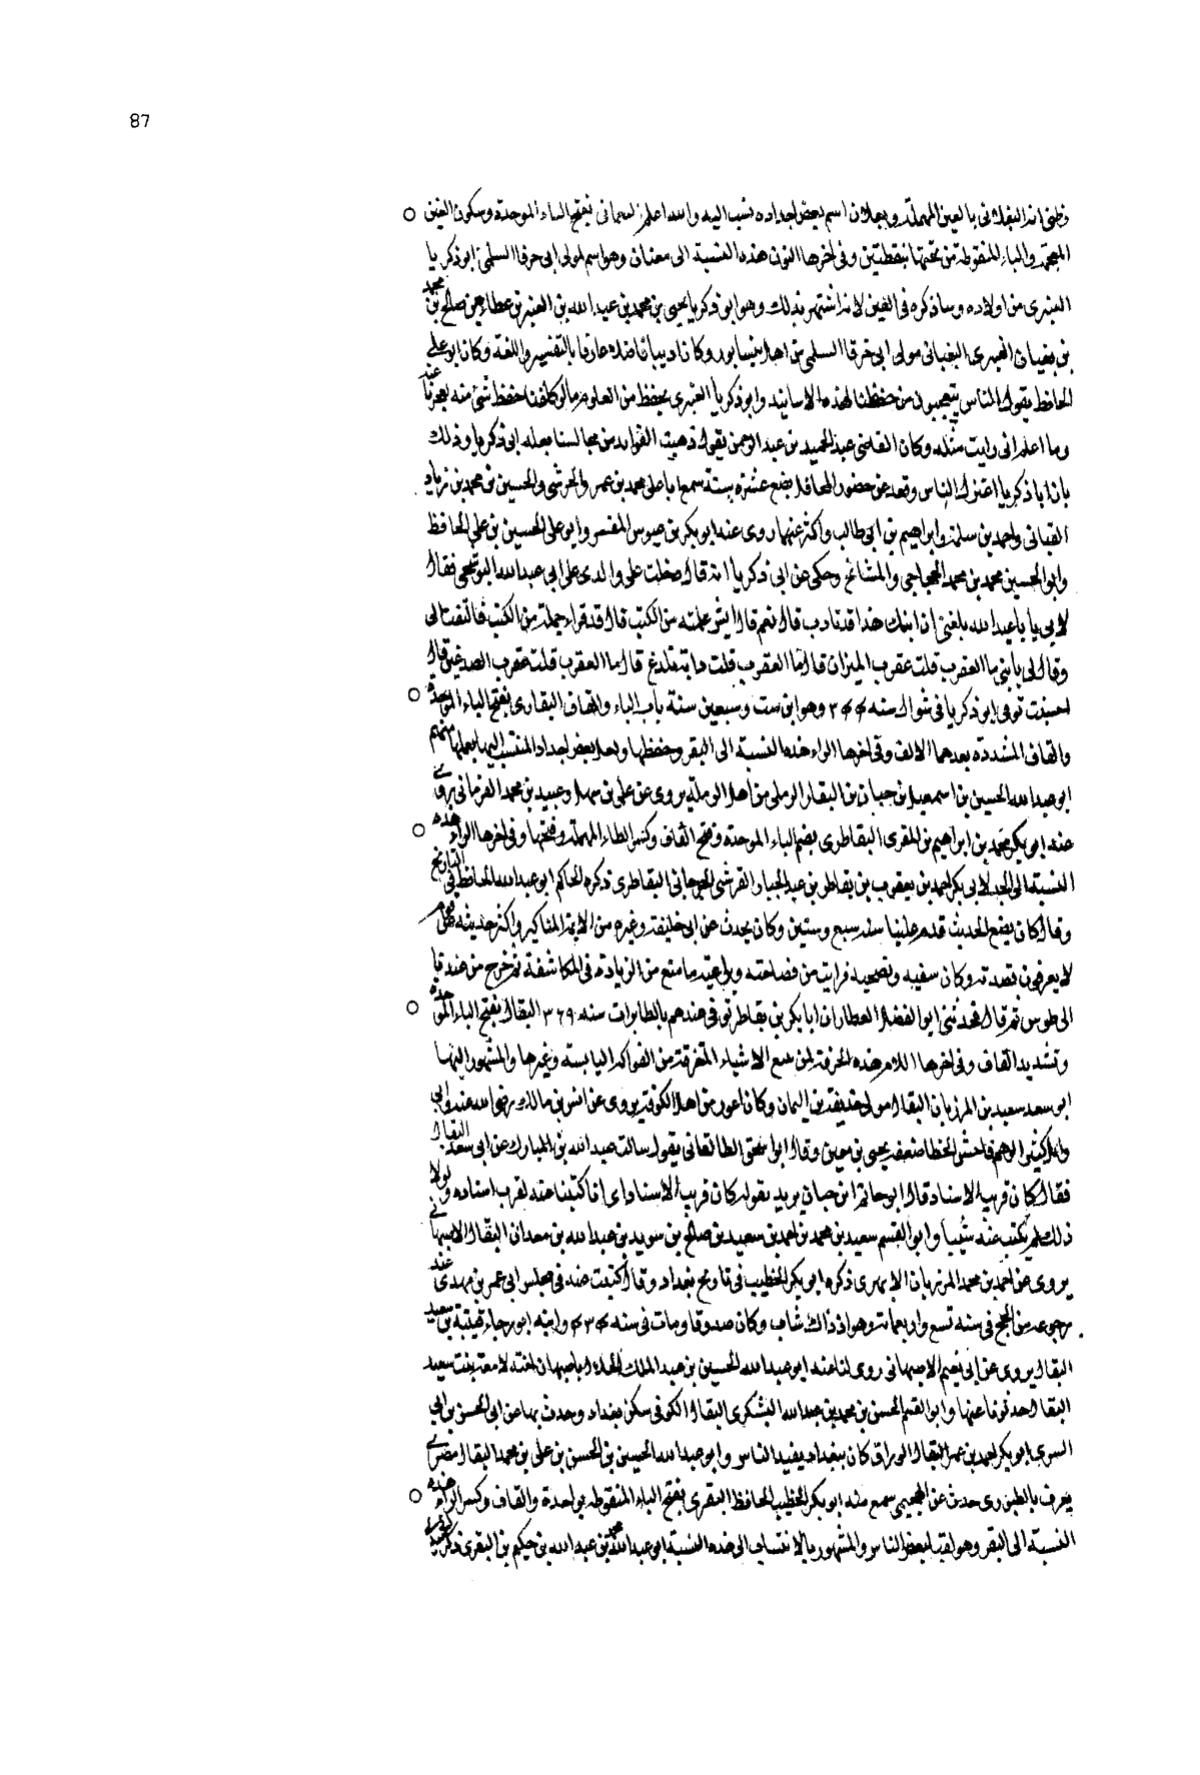 87
وظنى انه البعلانى بالعين المهملة وبعلان اسم بعض اجداده نسب اليه والله اعلم بفتح الباء الموحدة وسكون الغين
المعجمة والياء المنقوطة من تحتها بنقطتين وفى اخرها النون هذه النسبة الى بغيان وهو اسم لمولى ابى خرقا السلمى ابو ذكريا
العنبرى من اولاده وساذكره فى العين لانه اشتهر بذلك وهو ابو ذكريا يحيى بن محمد بن عبد الله بن العنبر بن عطاء بن صالح بن محمد
بن بغيان العنبرى البغيانى مولى ابى خرقا السلمى من اهل نيسابور وكان اديبا فاضلا عارفا بالتفسير واللغة وكان ابو على
الحافظ يقول الناس يتعجبون من حفظنا لهذه الاسانيد وابو ذكريا العنبرى يحفظ من العلوم ما لو كلفنا حفظ شئ منه لعجزنا عنه
وما اعلم انى رايت مثله وكان القاضى عبد الحميد بن عبد الرحمن يقول ذهبت الفوايد من مجالسنا بعلة ابى ذكريا وذلك
بان ابا ذكريا اعتزل الناس وقعد عن حضور المحافل بضع عشرة سنة سمع ابا على محمد بن عمرو الحرشى والحسين بن محمد بن زياد
القبانى واحمد بن سلمة وابراهيم بن ابى طالب واكثر عنهما روى عنه ابو بكر بن عبدوس المفسر وابو على الحسين بن على الحافظ
وابو الحسين محمد بن محمد الحجاجى والمشائخ وحكى عن ابى ذكريا انه قال دخلت على والدى على ابى عبد الله البوشنجى فقال
لابى يا ابا عبد الله بلغنى ان ابنك هذا قد تادب قال نعم قال ايش علمته من الكتب قال قد قراء جملة من الكتب فالتفت الى
وقال لى يا بنى ما العقرب قلت عقرب الميزان قال ما العقرب قلت دابة تلدغ قال ما العقرب قلت عقرب الصدغين قال
احسنت توفى ابو ذكريا فى شوال سنه ٣٤٤ وهو ابن ست وسبعين سنة باب الباء والقاف البقارى بفتح الباء الموحدة
والقاف المشددة بعدهما الالف وفى اخرها الراء هذه النسبة الى البقر وحفظها ولعل بعض اجداد المنتسب اليها يعملها منهم
ابو عبد الله الحسين بن اسمعيل بن حبان بن البقار الرملى من اهل الرملة يروى عن على بن سهل وعبيد بن محمد الفريانى روى
عنه ابو بكر محمد بن ابراهيم بن المقرى البقاطرى بضم الباء الموحدة وفتح القاف وكسر الطاء المهملة وفتحها وفى اخرها الراء هذه
النسبة الى الجد لابى بكر احمد بن يعقوب بن بقاطر بن عبد الجبار القرشى الجرجانى البقاطرى ذكره الحاكم ابو عبد الله الحافظ فى التاريخ
وقال كان يضع الحديث قدم علينا سنه سبع وستين وكان يحدث عن ابى خليفة وغيره من الائمة المناكير واكثر حديثه عن قوم
لا يعرفون قصدته وكان سفيه فرايت من فصاحته وبراعته ما منع من الزيادة فى المكاشفة ثم خرج من عندنا
الى طوس ثم قال فحدثنى ابو الفضل العطار ان ابا بكر بن بقاطر توفى عندهم بالطابران سنه ٣٦٩ البقال بفتح الباء الموحدة
وتشديد القاف وفى اخرها اللام هذه الحرفة لمن يبيع الاشياء المتفرقة من الفواكه اليابسة وغيرها والمشهور اليها
ابو سعد سعيد بن المرزبان البقال مولى حذيفة بن اليمان وكان اعور من اهل الكوفة يروى عن انس بن مالك رضى الله عنه وابى
وائل كثير الوهم فاحش الخطا ضعفه يحيى بن معين وقال ابو اسحق الطالقانى يقول سالت عبد الله بن المبارك عن ابى سعد البقال
فقال كان قريب الاسناد قال ابو حاتم ابن حبان يريد بقوله كان قريب الاسناد اى انا كتبنا عنه لقرب اسناده ولولا
ذلك لم نكتب عنه شيئا وابو القسم سعيد بن محمد بن احمد بن سعيد بن صالح بن سويد بن عبد الله بن معدان البقال الاصبهانى
يروى عن احمد بن محمد المرزبان الابهرى ذكره ابو بكر الخطيب فى تاريخ بغداد وقال كتبت عنه فى مجلس ابى عمر بن مهدى عند
رجوعه من الحج فى سنه تسع واربعمائة وهو اذ ذاك شاب وكان صدوقا ومات فى سنه ٤٣٤ وابنه ابو رجاء قتيبة بن سعيد
البقال يروى عن ابى نعيم الاصبهانى روى لنا عنه ابو عبد الله الحسين بن عبد الملك الخلال باصبهان اخته لامعة بنت سعيد
البقال حدثونا عنها وابو القسم الحسن بن محمد بن عبد الله اليشكرى البقال الكوفى سكن بغداد وحدث بها عن ابى الحسن بن ابى
السرى ابو بكر احمد بن عمر البقال الوراق كان ببغداد يفيد الناس وابو عبد الله الحسين بن الحسن بن على بن محمد البقال مضرى
يعرف حدث عن سمع منه ابو بكر الخطيب الحافظ البقرى بفتح الباء المنقوطة بواحدة والقاف وكسر الراء هذه
النسبة الى البقر وهو لقب لبعض الناس والمشهور بالانتساب الى هذه النسبة ابو عبد الله محمد بن عبد الله بن حكيم بن البقرى